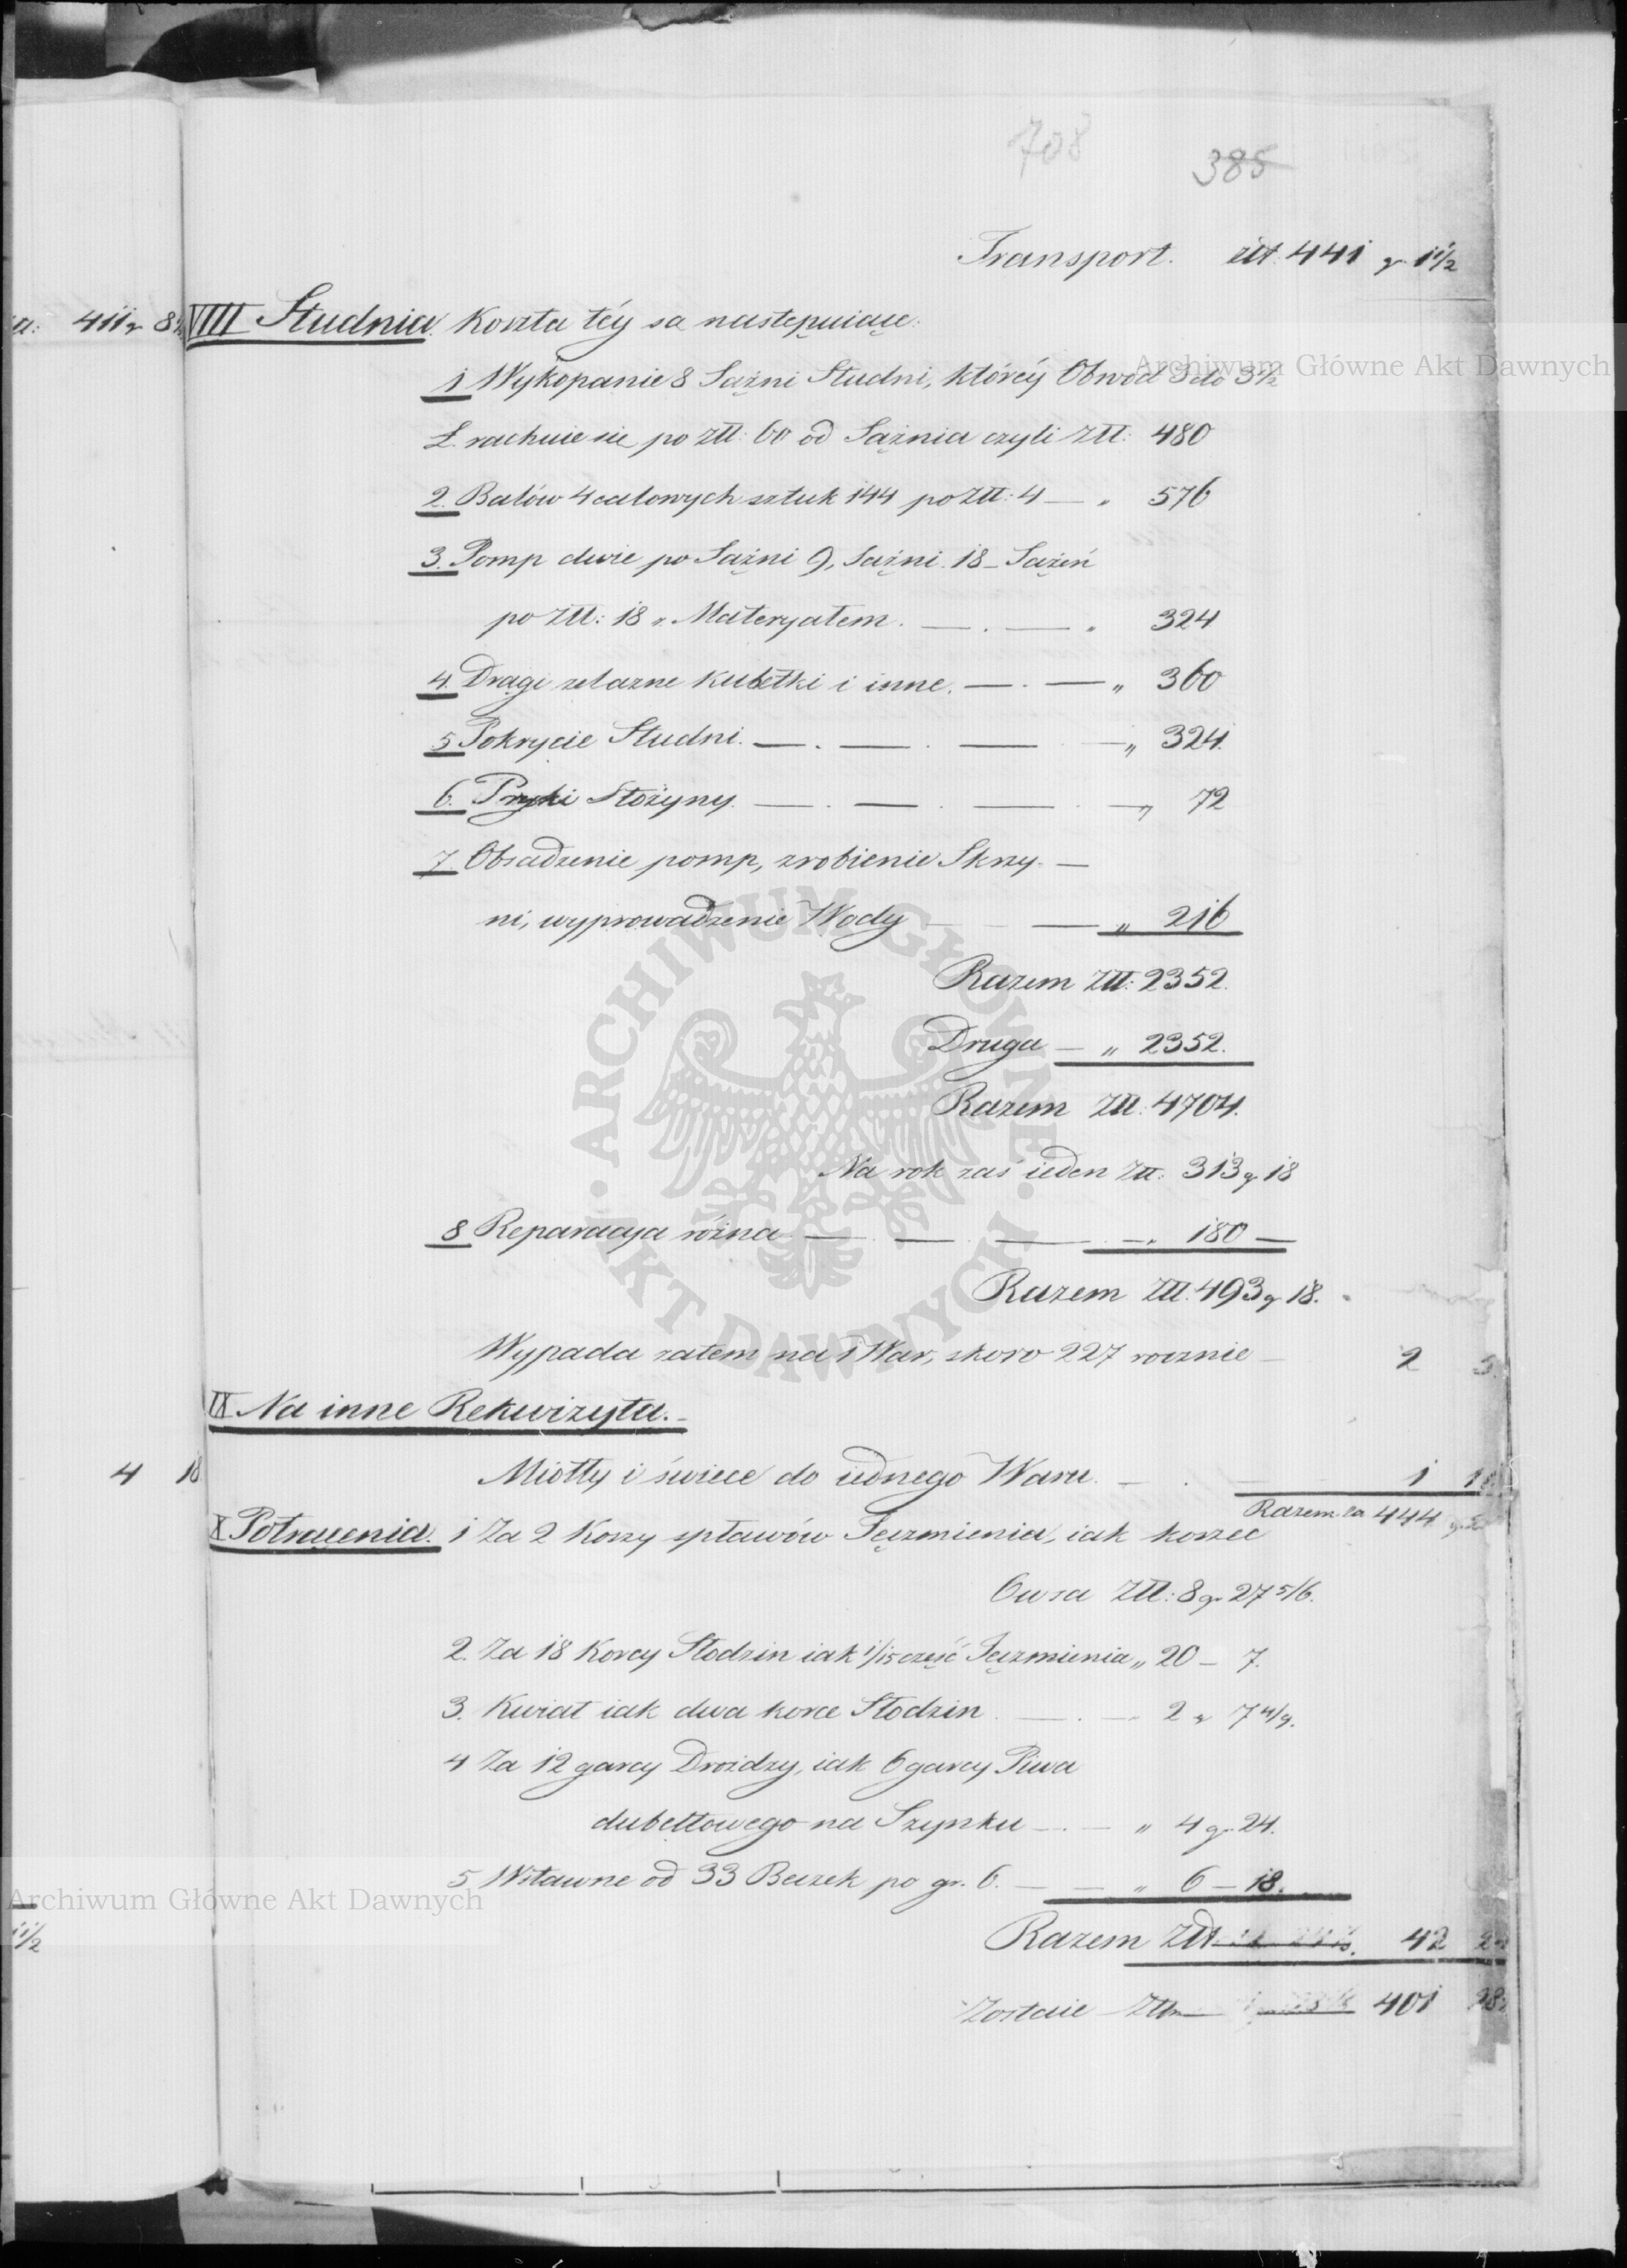 708
385
Transport. złt. 441 gr 1 1/2
VIII Studnia. Koszta téy sa nastepuiące:
1 Wykopanie 8 Sążni Studni, któréy Obwod 3 do 3 1/2
Ł. rachuie się po złł: 60 od Sążnia czyli złł: 480
2. Balów 4 calowych sztuk 144 po złł: 4 — „ 576
3. Pomp dwie po Sążni 9, Sążni 18 – Sążeń
po złł: 18 z Materyałem. — . — „ 324
4. Dragi zelazne kubełki i inne. — . — „ 360
5 Pokrycie Studni. — . — . — . — „ 324.
6. Słożyny. — . — . — . — „ 72
7. Obsadzenie pomp, zrobienie Skrzy- —
ni, wyprowadzenie Wody — — „ 216
Razem złł: 2352.
Druga — „ 2352.
Razem złł: 4704.
Na rok zaś ieden złł. 313 gr 18
8 Reparacya rózna — . — . — . — „ 180 —
Razem złł. 493 gr 18.
Wypada zatem na 1 War, skoro 227 rocznie — 2 5
IX Na inne Rekwizyta.–
Miotły i świece do iednego Waru. — . — 1 18
Razem za 444
X Potrącenia. 1 Za 2 Korcy spławów Jęczmienia, iak korzec
Owsa złł: 8 gr 27 5/6.
2. Za 18 Korcy Słodzin iak 1/15 część Jęczmienia „ 20 – 7.
3. Kwiat iak dwa korce Słodzin. — . — 2 gr 7 4/9.
4 Za 12 garcy Drożdzy, iak 6 garcy Piwa
dubeltowego na Szynku — . — „ 4 gr. 24.
5 Wstawne od 33 Beczek po gr. 6. — — „ 6 – 18.
Razem złł 42
Zostaie złł 401 28
a: 411 gr 8
4 18
1 1/2
Archiwum Główne Akt Dawnych
ARCHIWUM GŁÓWNE AKT DAWNYCH
Archiwum Główne Akt Dawnych